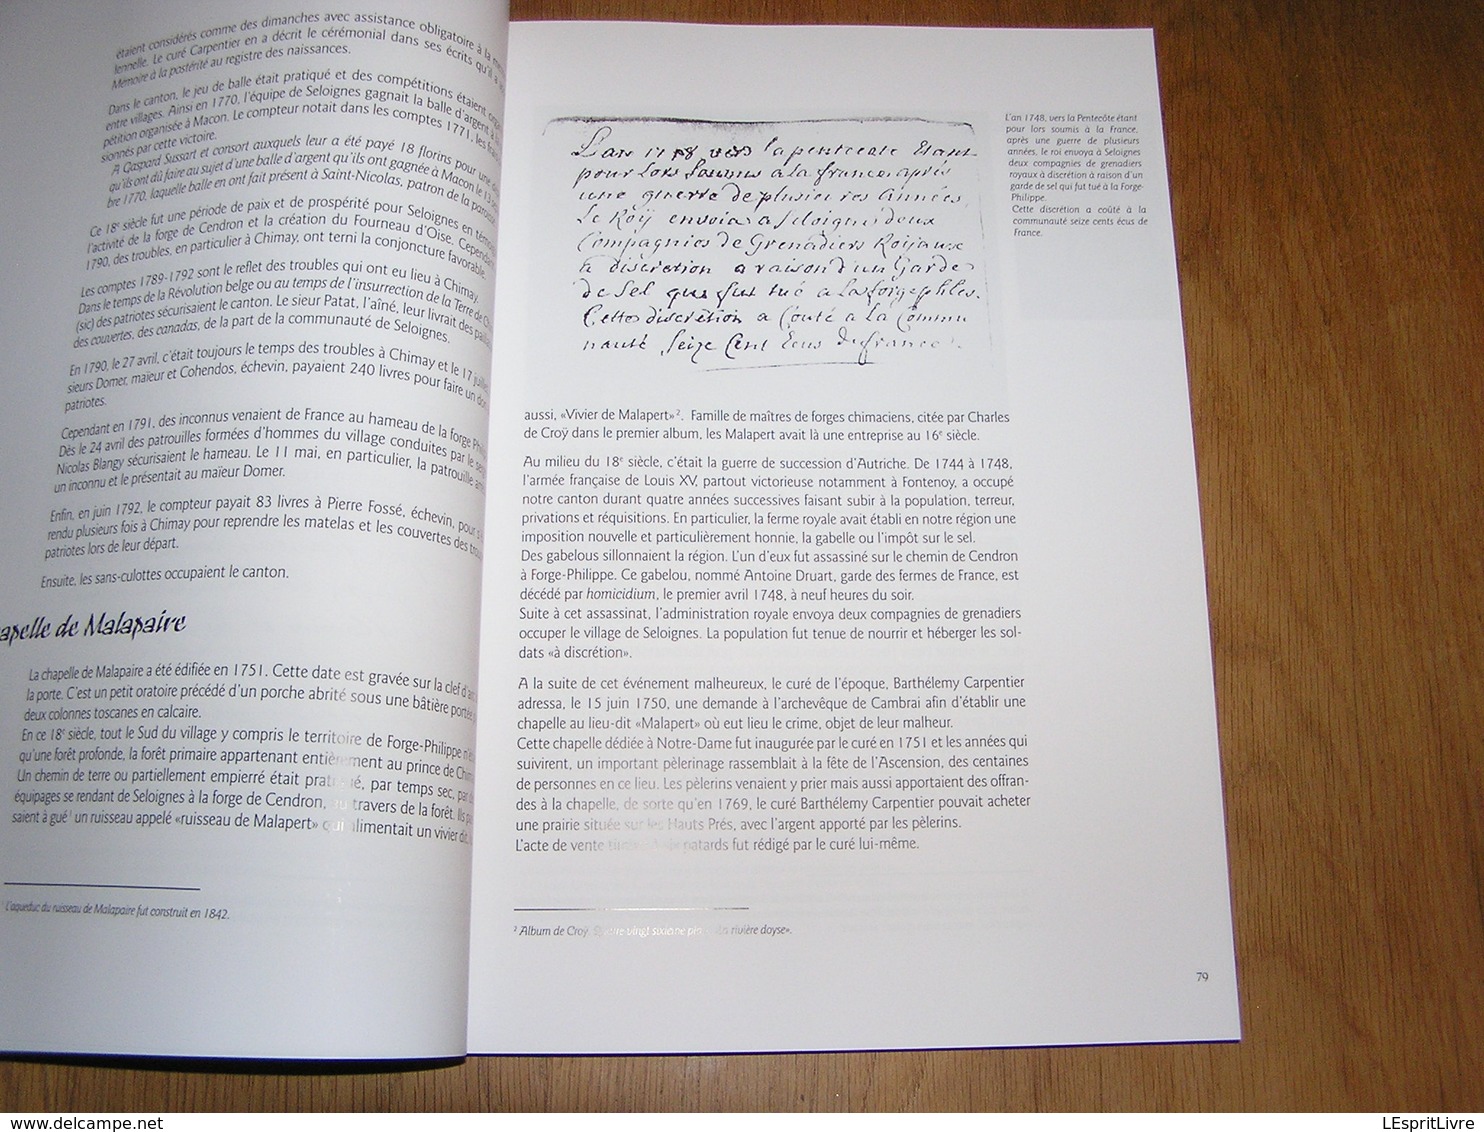 étaient considérés comme des dimanches avec assistance obligatoire à la
lennelle. Le curé Carpentier en a décrit le cérémonial dans ses écrits qu'il a
Mémoire à la postérité au registre des naissances.
Dans le canton, le jeu de balle était pratiqué et des compétitions étaient
entre villages. Ainsi en 1770, l'équipe de Seloignes gagnait la balle d'argent à
pétition organisée à Macon. Le compteur notait dans les comptes 1771, les
sionnés par cette victoire.
A Gaspard Sussart et consort auxquels leur a été payé 18 florins pour une
qu'ils ont dû faire au sujet d'une balle d'argent qu'ils ont gagnée à Macon le 13
bre 1770, laquelle balle en ont fait présent à Saint-Nicolas, patron de la
Ce 18e siècle fut une période de paix et de prospérité pour Seloignes en
l'activité de la forge de Cendron et la création du Fourneau d'Oise.
1790, des troubles, en particulier à Chimay, ont terni la conjoncture favorable.
Les comptes 1789-1792 sont le reflet des troubles qui ont eu lieu à Chimay.
Dans le temps de la Révolution belge ou au temps de l'insurrection de la Terre de
(sic) des patriotes sécurisaient le canton. Le sieur Patat, l'aîné, leur livrait des
des couvertes, des canadas, de la part de la communauté de Seloignes.
En 1790, le 27 avril, c'était toujours le temps des troubles à Chimay et le 17
sieurs Domer, maïeur et Cohendos, échevin, payaient 240 livres pour faire un
patriotes.
Cependant en 1791, des inconnus venaient de France au hameau de la forge
Dès le 24 avril des patrouilles formées d'hommes du village conduites par le
Nicolas Blangy sécurisaient le hameau. Le 11 mai, en particulier, la patrouille
un inconnu et le présentait au maïeur Domer.
Enfin, en juin 1792, le compteur payait 83 livres à Pierre Fossé, échevin, pour
rendu plusieurs fois à Chimay pour reprendre les matelas et les couvertes des
patriotes lors de leur départ.
Ensuite, les sans-culottes occupaient le canton.
apelle de Malapaire
La chapelle de Malapaire a été édifiée en 1751. Cette date est gravée sur la clef
la porte. C'est un petit oratoire précédé d'un porche abrité sous une bâtière
deux colonnes toscanes en calcaire.
En ce 18e siècle, tout le Sud du village y compris le territoire de Forge-Philippe
qu'une forêt profonde, la forêt primaire appartenant entièrement au prince de
Un chemin de terre ou partiellement empierré était pratiqué, par temps sec, par
équipages se rendant de Seloignes à la forge de Cendron, au travers de la forêt. Ils
saient à gué1 un ruisseau appelé «ruisseau de Malapert» qui alimentait un vivier dit,
1 L'aqueduc du ruisseau de Malapaire fut construit en 1842.
L'an 1748 vers la pentecote Etant
pour lors Soumis a la france, après
une guerre de plusieures Années,
Le Roÿ envoia a Seloignes deux
Compagnies de Grenadiers Roijaux
a discretion a raison d'un Garde
de Sel qui fut tué a la forge philes.
Cette discretion a Couté a la Commu
nauté Seize Cent Ecus de france.
L'an 1748, vers la Pentecôte étant
pour lors soumis à la France,
après une guerre de plusieurs
années, le roi envoya à Seloignes
deux compagnies de grenadiers
royaux à discrétion à raison d'un
garde de sel qui fut tué à la Forge-
Philippe.
Cette discrétion a coûté à la
communauté seize cents écus de
France.
aussi, «Vivier de Malapert»2. Famille de maîtres de forges chimaciens, citée par Charles
de Croÿ dans le premier album, les Malapert avait là une entreprise au 16e siècle.
Au milieu du 18e siècle, c'était la guerre de succession d'Autriche. De 1744 à 1748,
l'armée française de Louis XV, partout victorieuse notamment à Fontenoy, a occupé
notre canton durant quatre années successives faisant subir à la population, terreur,
privations et réquisitions. En particulier, la ferme royale avait établi en notre région une
imposition nouvelle et particulièrement honnie, la gabelle ou l'impôt sur le sel.
Des gabelous sillonnaient la région. L'un d'eux fut assassiné sur le chemin de Cendron
à Forge-Philippe. Ce gabelou, nommé Antoine Druart, garde des fermes de France, est
décédé par homicidium, le premier avril 1748, à neuf heures du soir.
Suite à cet assassinat, l'administration royale envoya deux compagnies de grenadiers
occuper le village de Seloignes. La population fut tenue de nourrir et héberger les sol-
dats «à discrétion».
A la suite de cet événement malheureux, le curé de l'époque, Barthélemy Carpentier
adressa, le 15 juin 1750, une demande à l'archevêque de Cambrai afin d'établir une
chapelle au lieu-dit «Malapert» où eut lieu le crime, objet de leur malheur.
Cette chapelle dédiée à Notre-Dame fut inaugurée par le curé en 1751 et les années qui
suivirent, un important pèlerinage rassemblait à la fête de l'Ascension, des centaines
de personnes en ce lieu. Les pèlerins venaient y prier mais aussi apportaient des offran-
des à la chapelle, de sorte qu'en 1769, le curé Barthélemy Carpentier pouvait acheter
une prairie située sur les Hauts Prés, avec l'argent apporté par les pèlerins.
L'acte de vente patards fut rédigé par le curé lui-même.
2 Album de Croÿ. vingt sixième rivière doyse».
79
LEspritLivre